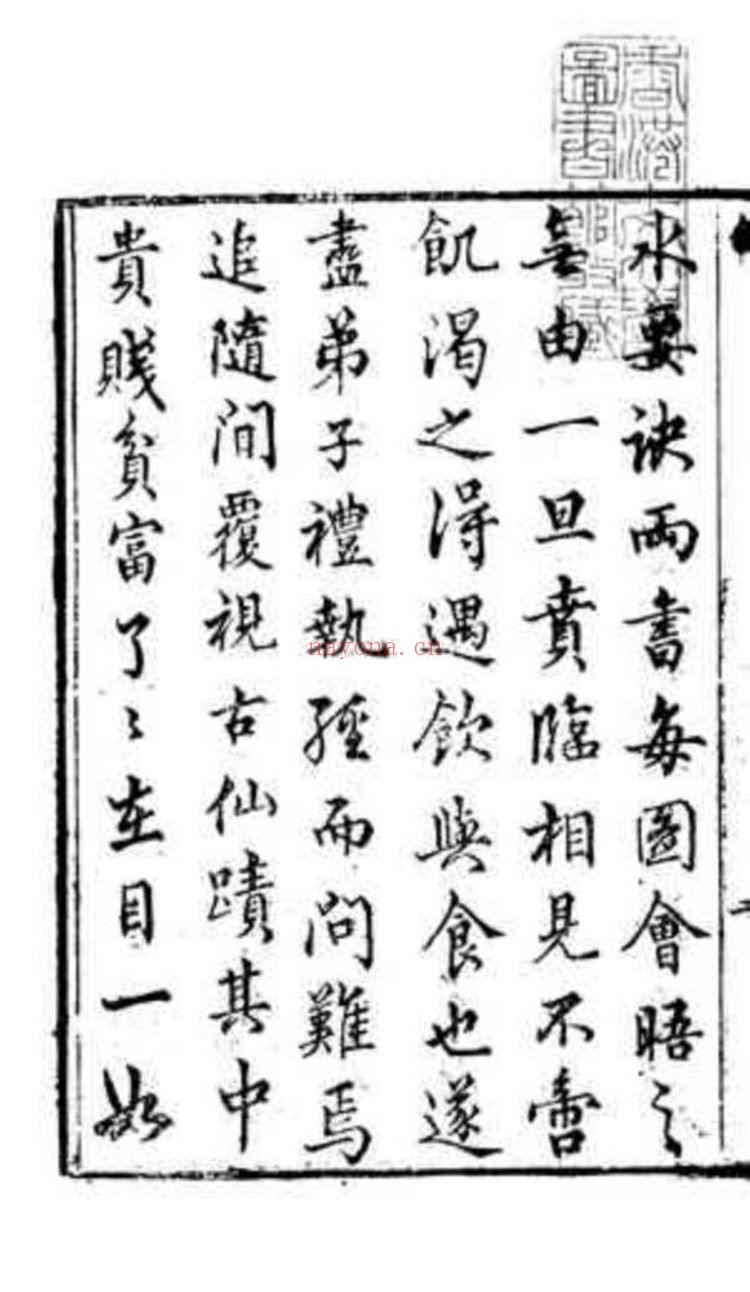 水要訣兩書每圖會晤之
無由一旦賁臨相見不啻
飢渴之得遇飲與食也遂
盡弟子禮執經而問難焉
追隨間覆視古仙蹟其中
貴賤貧富了〻在目一如
nayona.cn